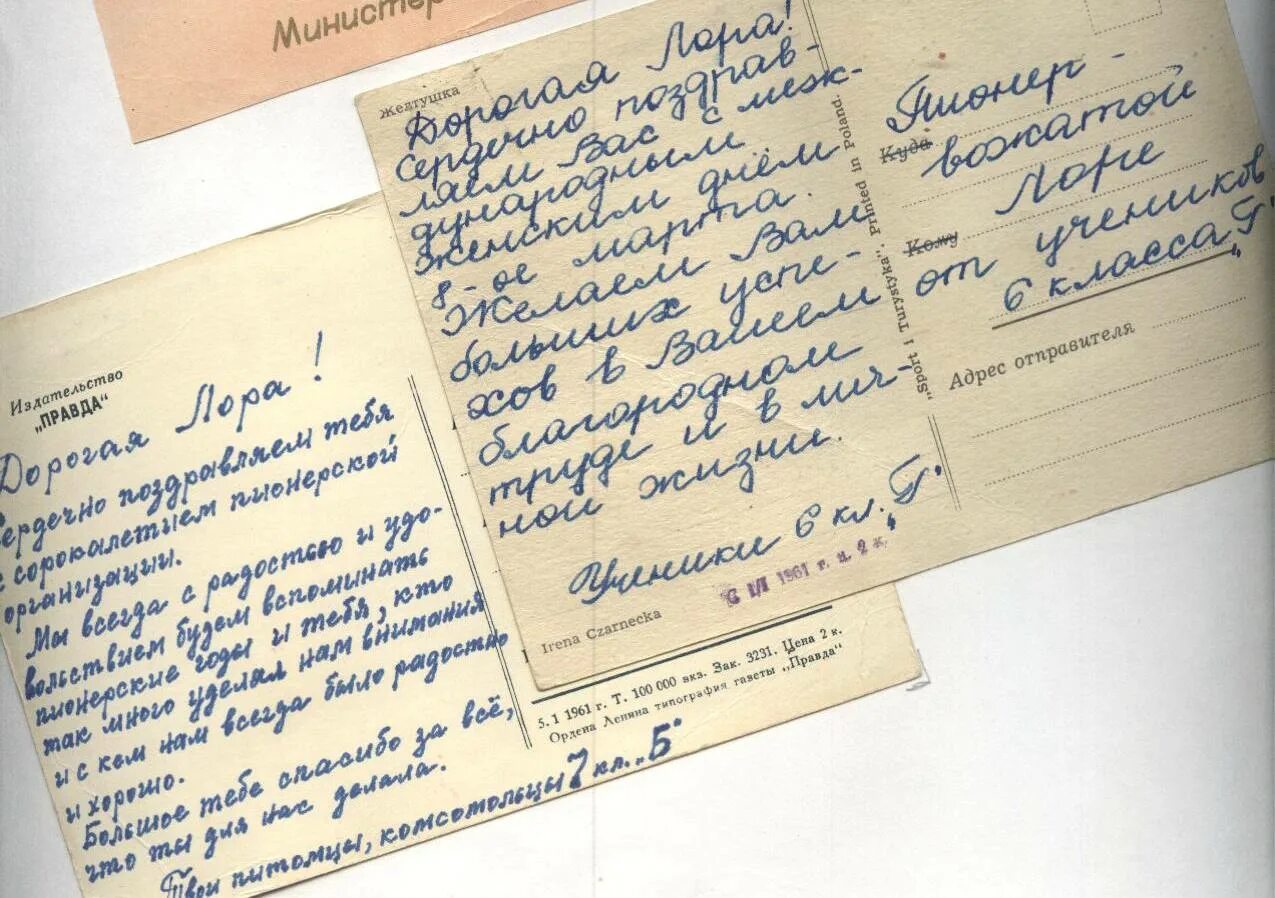 Министер
Желтушка
Дорогая Лора!
Сердечно поздрав-
ляем Вас с меж-
дународным
женским днём
8-ое марта.
Желаем Вам
больших успе-
хов в Вашем
благородном
труде и в лич-
ной жизни.
Ученики 6 кл. „Г"
6 IVI 1961 г. ц. 2 к.
Irena Czarnecka
„Sport i Turystyka". Printed in Poland.
Пионер-
Куда
вожатой
Лоре
Кому
от учеников
6 класса „Г"
Адрес отправителя
Издательство
„ПРАВДА"
Дорогая Лора!
Сердечно поздравляем тебя
с сорокалетием пионерской
организации.
Мы всегда с радостью и удо-
вольствием будем вспоминать
пионерские годы и тебя, кто
так много уделял нам внимания
и с кем нам всегда было радостно
и хорошо.
Большое тебе спасибо за всё,
что ты для нас делала.
Твои питомцы, комсомольцы 7 кл. „Б"
5.1 1961 г. Т. 100 000 экз. Зак. 3231. Цена 2 к.
Ордена Ленина типография газеты „Правда"